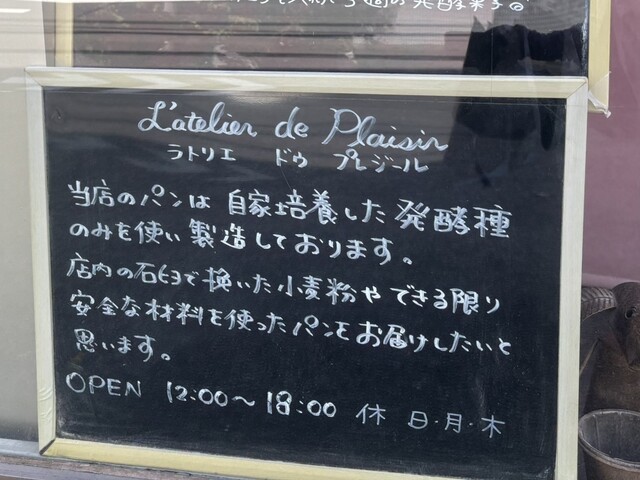 L'atelier de Plaisir
ラトリエ ドゥ プレジール
当店のパンは自家培養した発酵種
のみを使い製造しております。
店内の石臼で挽いた小麦粉やできる限り
安全な材料を使ったパンをお届けしたいと
思います。
OPEN 12:00~18:00 休 日・月・木